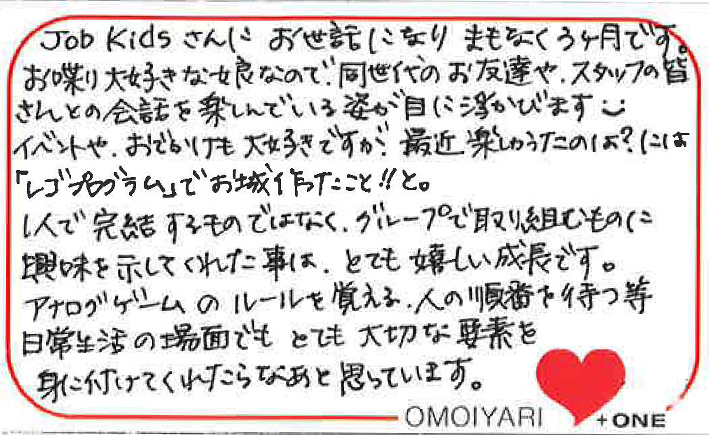 Job Kidsさんに お世話になり まもなく3ヶ月です。
お喋り大好きな娘なので、同世代のお友達や、スタッフの皆
さんとの会話を楽しんでいる姿が目に浮かびます
イベントや、おでかけも大好きですが、最近楽しかったのは?には
「レゴプログラム」でお城作ったこと!!と。
1人で完結するものではなく、グループで取り組むものに
興味を示してくれた事は、とても嬉しい成長です。
アナログゲームのルールを覚える、人の順番を待つ等
日常生活の場面でも とても大切な要素を
身に付けてくれたらなあと思っています。
OMOIYARI +ONE